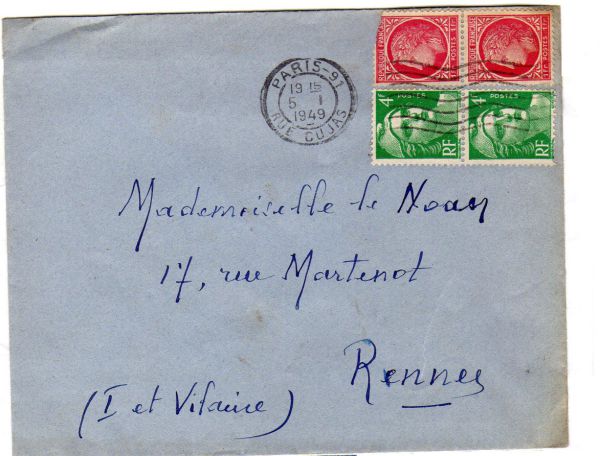 REPUBLIQUE FRANÇAISE POSTES 1F REPUBLIQUE FRANÇAISE POSTES 1F
PARIS-91
19 15
5 1
1949
RUE CUJAS
4F POSTES RF 4F POSTES RF
Mademoiselle le
17, rue Martenot
Rennes
(I et Vilaine)